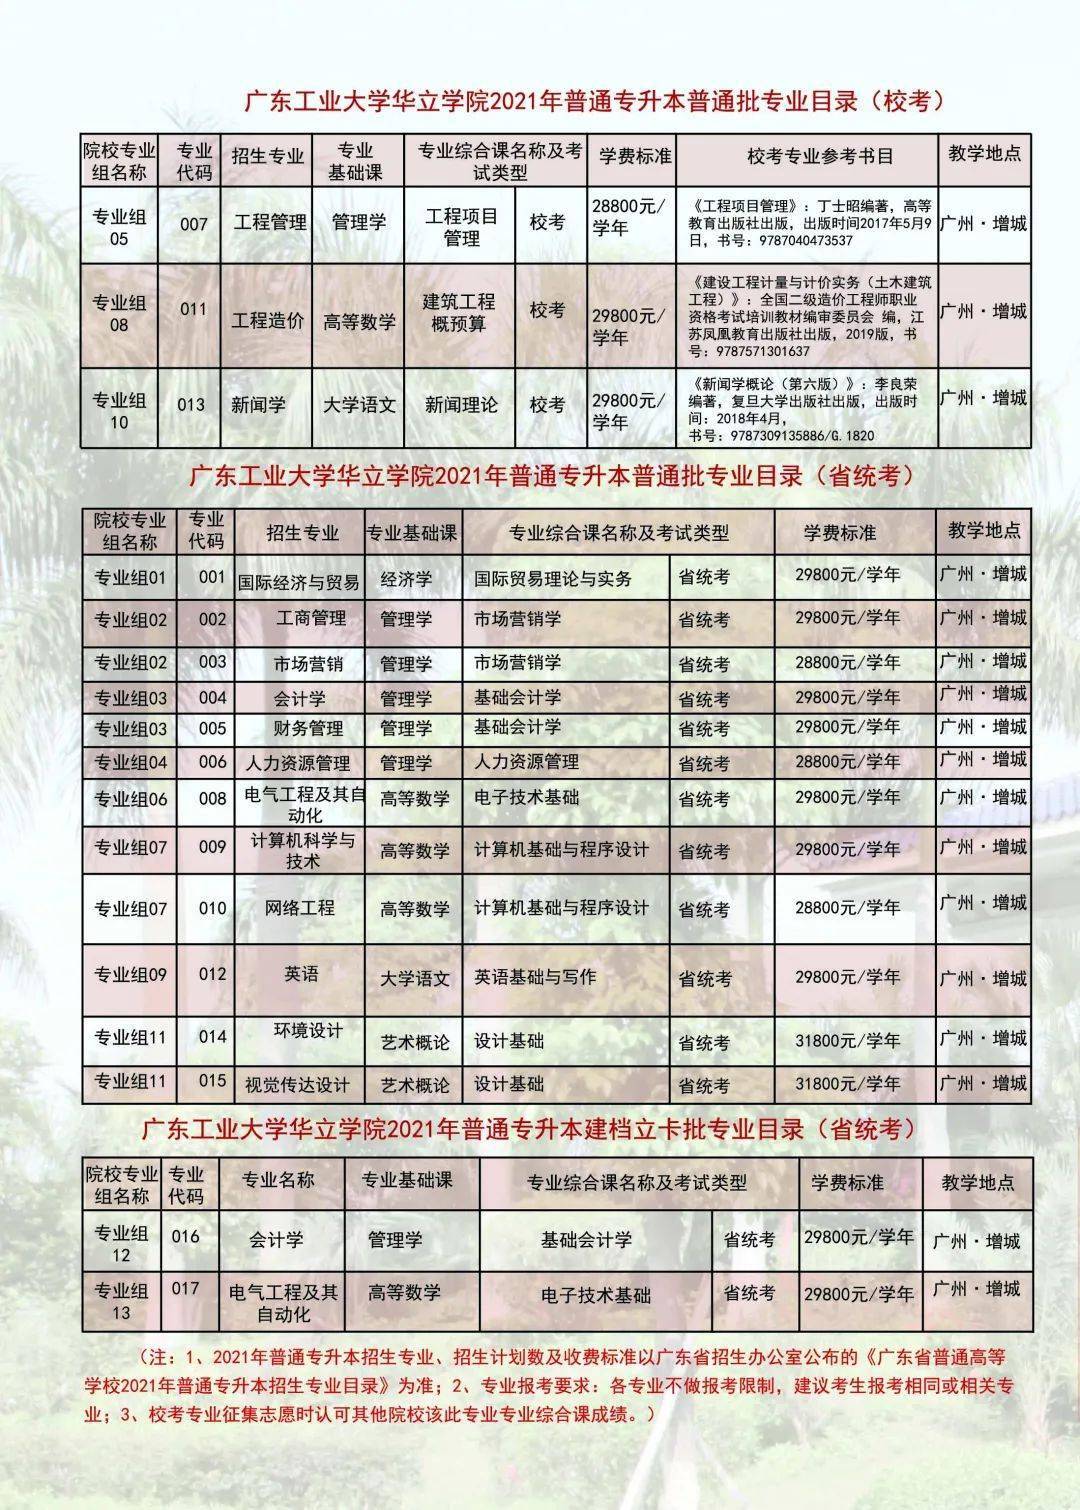 广东工业大学华立学院2021年普通专升本普通批专业目录（校考）
院校专业组名称 专业代码 招生专业 专业基础课 专业综合课名称及考试类型 学费标准 校考专业参考书目 教学地点
专业组05 007 工程管理 管理学 工程项目管理 校考 28800元/学年 《工程项目管理》：丁士昭编著，高等教育出版社出版，出版时间2017年5月9日，书号：9787040473537 广州·增城
专业组08 011 工程造价 高等数学 建筑工程概预算 校考 29800元/学年 《建设工程计量与计价实务（土木建筑工程）》：全国二级造价工程师职业资格考试培训教材编审委员会 编，江苏凤凰教育出版社出版，2019版，书号：9787571301637 广州·增城
专业组10 013 新闻学 大学语文 新闻理论 校考 29800元/学年 《新闻学概论（第六版）》：李良荣编著，复旦大学出版社出版，出版时间：2018年4月，书号：9787309135886/G.1820 广州·增城
广东工业大学华立学院2021年普通专升本普通批专业目录（省统考）
院校专业组名称 专业代码 招生专业 专业基础课 专业综合课名称及考试类型 学费标准 教学地点
专业组01 001 国际经济与贸易 经济学 国际贸易理论与实务 省统考 29800元/学年 广州·增城
专业组02 002 工商管理 管理学 市场营销学 省统考 29800元/学年 广州·增城
专业组02 003 市场营销 管理学 市场营销学 省统考 28800元/学年 广州·增城
专业组03 004 会计学 管理学 基础会计学 省统考 29800元/学年 广州·增城
专业组03 005 财务管理 管理学 基础会计学 省统考 29800元/学年 广州·增城
专业组04 006 人力资源管理 管理学 人力资源管理 省统考 28800元/学年 广州·增城
专业组06 008 电气工程及其自动化 高等数学 电子技术基础 省统考 29800元/学年 广州·增城
专业组07 009 计算机科学与技术 高等数学 计算机基础与程序设计 省统考 29800元/学年 广州·增城
专业组07 010 网络工程 高等数学 计算机基础与程序设计 省统考 28800元/学年 广州·增城
专业组09 012 英语 大学语文 英语基础与写作 省统考 29800元/学年 广州·增城
专业组11 014 环境设计 艺术概论 设计基础 省统考 31800元/学年 广州·增城
专业组11 015 视觉传达设计 艺术概论 设计基础 省统考 31800元/学年 广州·增城
广东工业大学华立学院2021年普通专升本建档立卡批专业目录（省统考）
院校专业组名称 专业代码 专业名称 专业基础课 专业综合课名称及考试类型 学费标准 教学地点
专业组12 016 会计学 管理学 基础会计学 省统考 29800元/学年 广州·增城
专业组13 017 电气工程及其自动化 高等数学 电子技术基础 省统考 29800元/学年 广州·增城
（注：1、2021年普通专升本招生专业、招生计划数及收费标准以广东省招生办公室公布的《广东省普通高等
学校2021年普通专升本招生专业目录》为准；2、专业报考要求：各专业不做报考限制，建议考生报考相同或相关专
业；3、校考专业征集志愿时认可其他院校该此专业专业综合课成绩。）